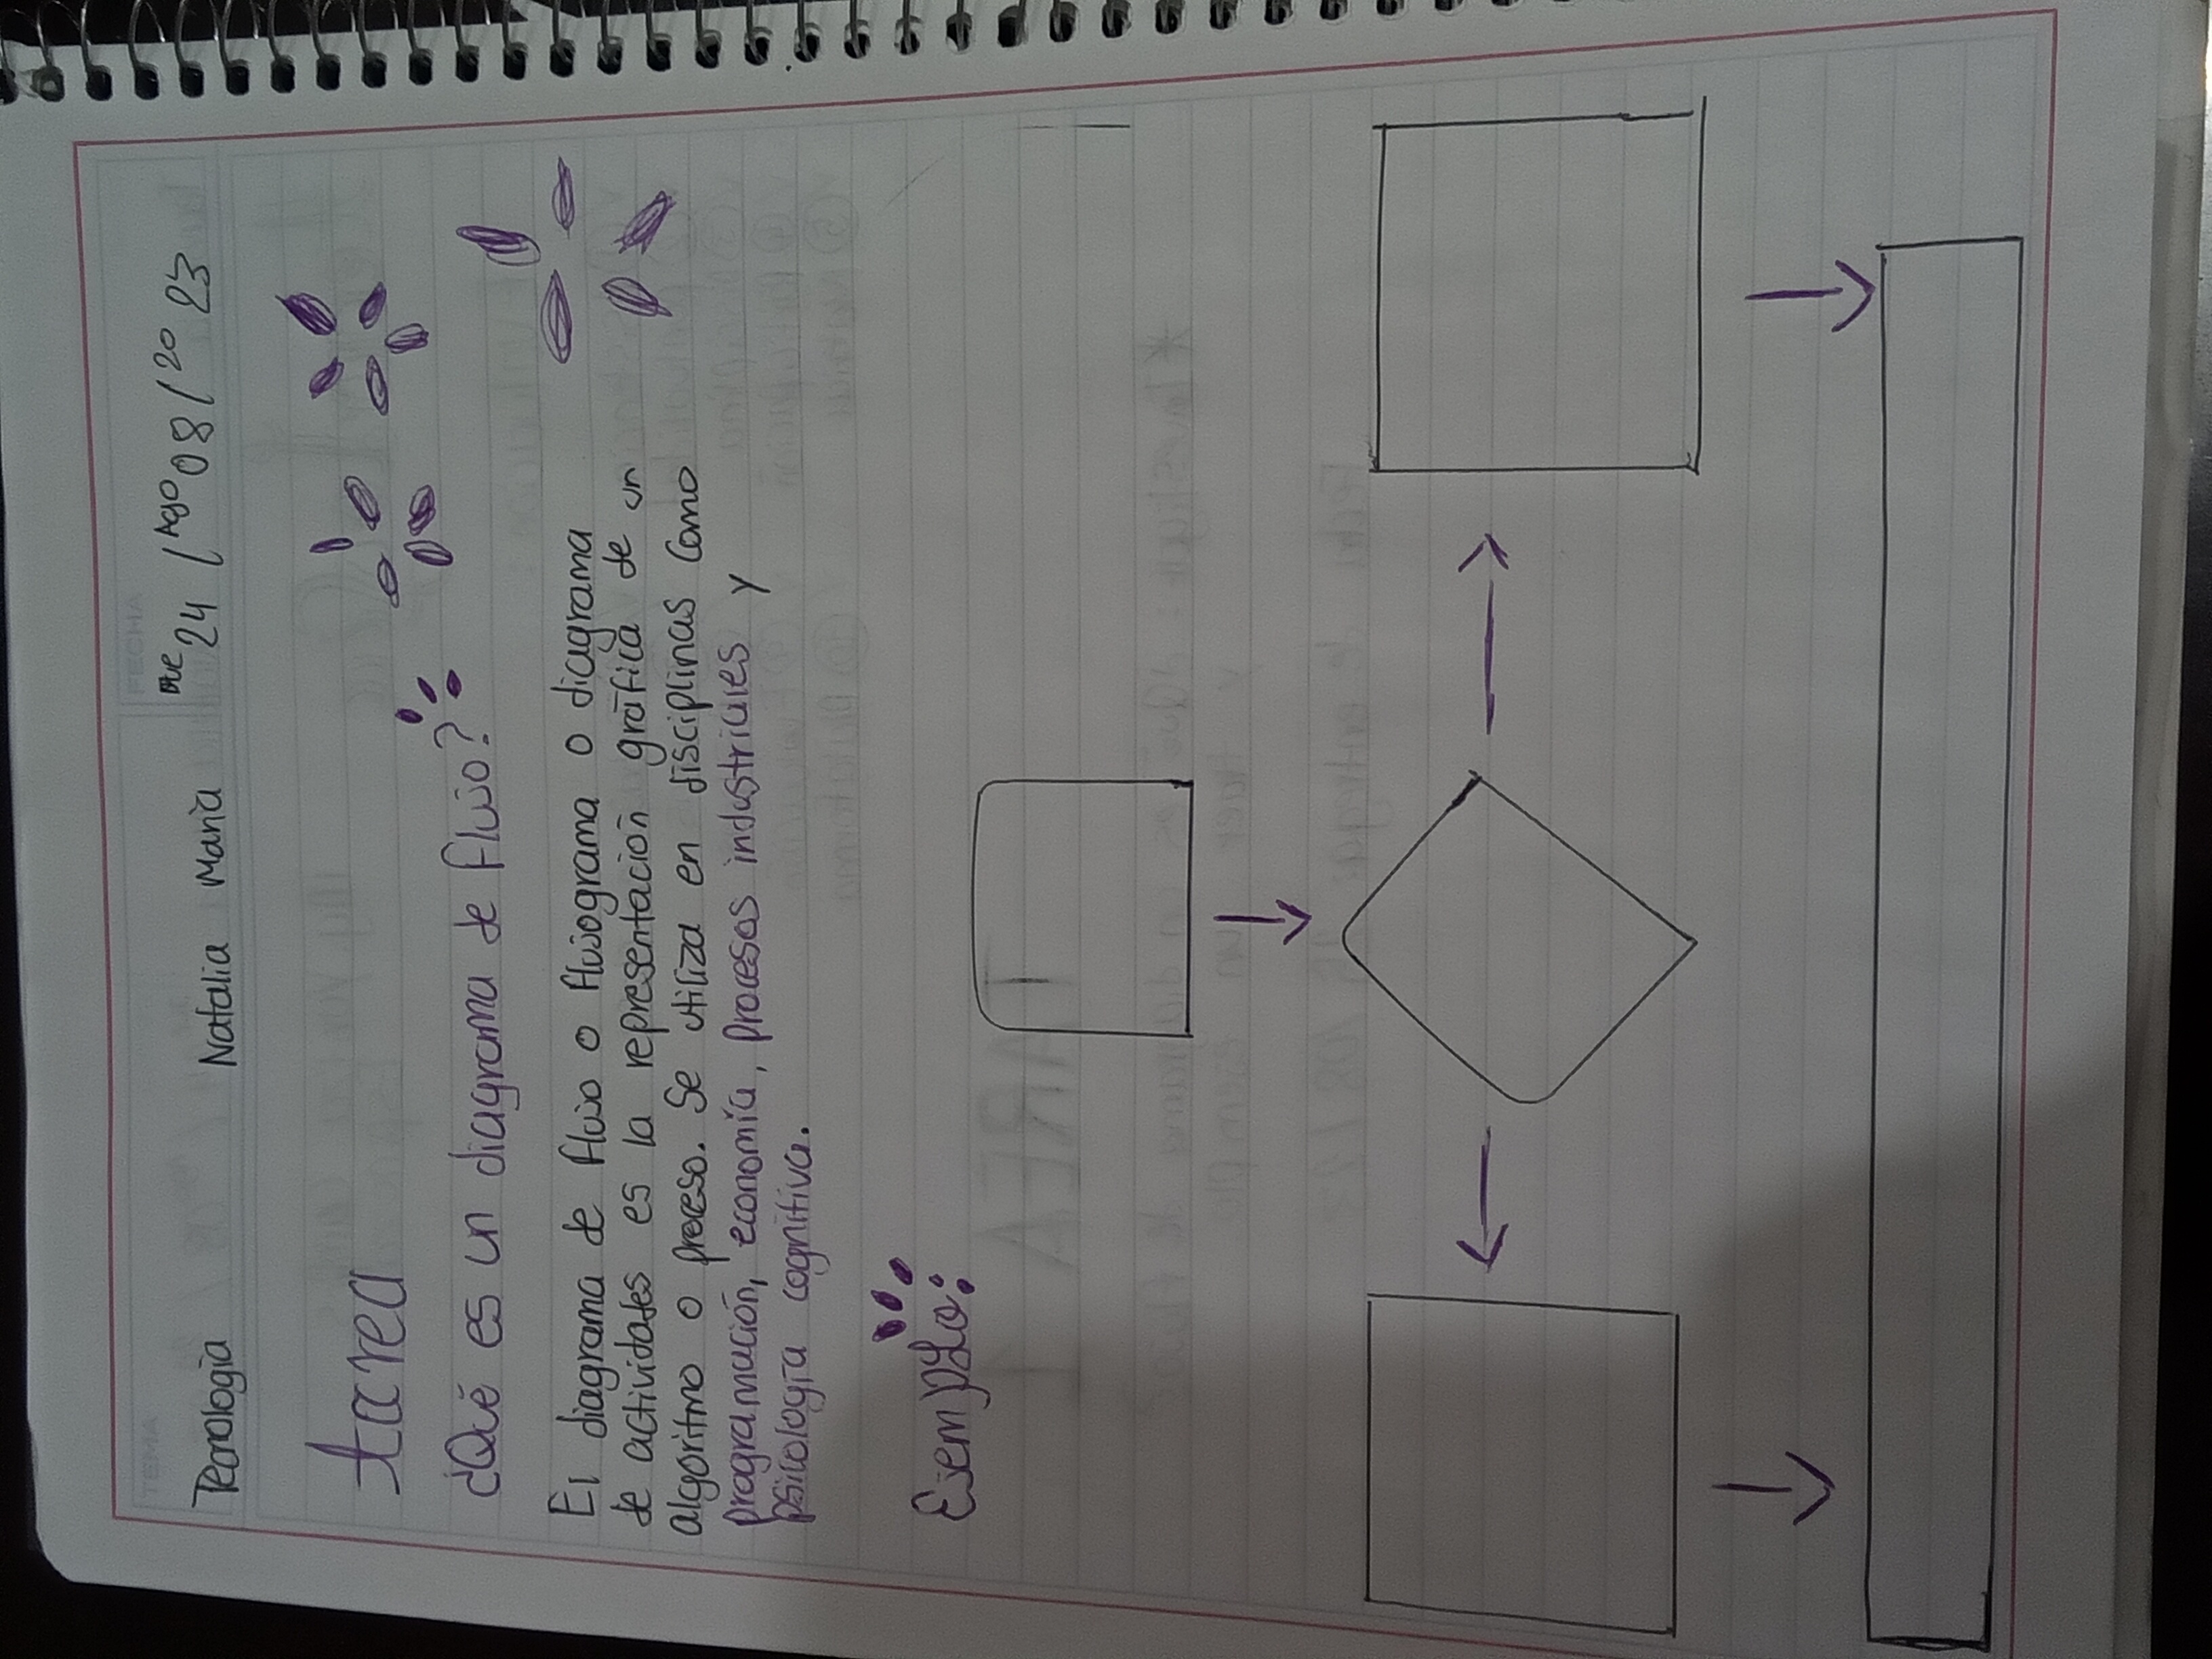 TEMA
FECHA
Tecnología Natalia María
Jue 24 / Ago 08 / 20 23
tarea
¿Qué es un diagrama de flujo?
El diagrama de flujo o flujograma o diagrama
de actividades es la representación gráfica de un
algoritmo o proceso. Se utiliza en disciplinas como
programación, economía, procesos industriales y
psicología cognitiva.
Ejemplo: